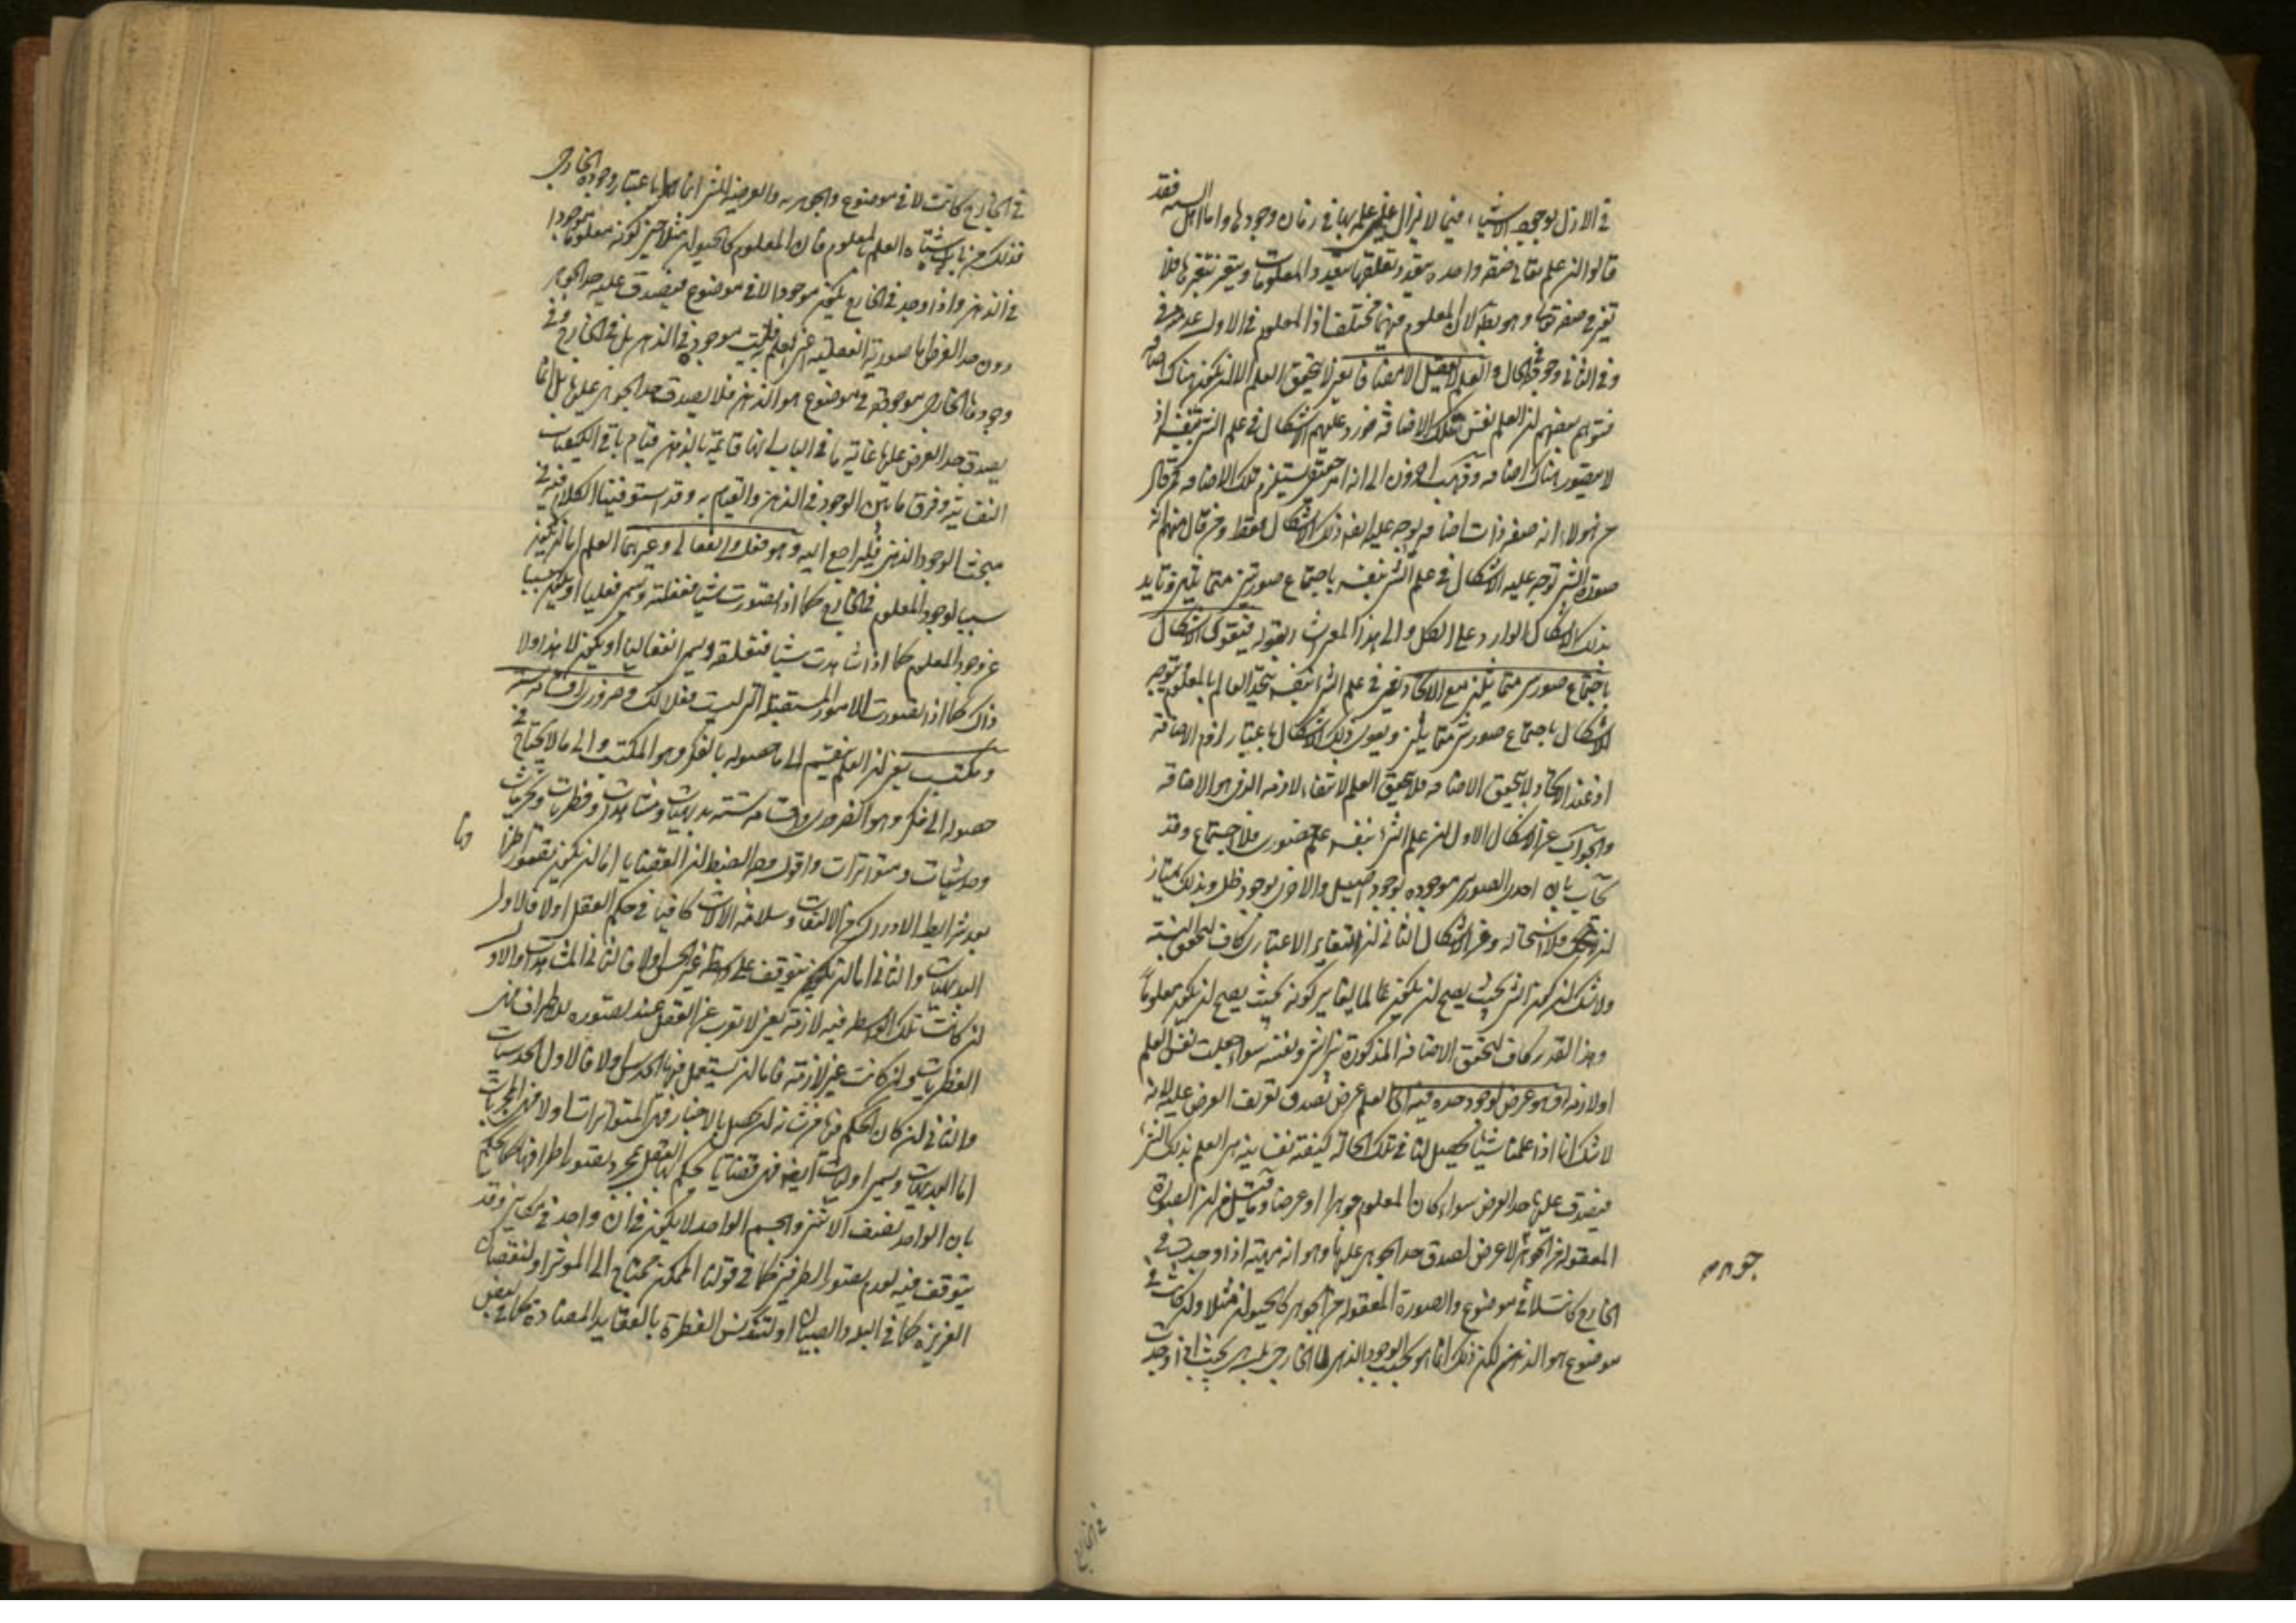 في الازل بوجود الاشياء فيما لا يزال علمه بها في زمان وجودها واما اهل السنه فقد
قالوا ان علم تعالى صفة واحدة يتعدد تعلقها بتعدد المعلومات ويتغير بتغيرها فلا
تغير في صفة تعالى وهو بط لان المعلوم فيهما مختلف اذ المعلوم في الاول عدم في
وفي الثاني وجود في الحال والعلم لا يعقل الا مضافا يعني لا يتحقق العلم الا ان يكون هناك اضافة
فتوهم بعضهم ان العلم نفس تلك الاضافة فورد عليهم الاشكال في علم الشئ بنفسه اذ
لا يتصور هناك اضافه وذهب اخرون الى انه امر حقيقي يستلزم تلك الاضافه فمن قال
من هؤلاء انه صفة ذات اضافه يتوجه عليه ايضا ذلك الاشكال فقط ومن قال منهم انه
صورة الشئ توجه عليه الاشكال في علم الشئ بنفسه باجتماع صورتين متماثلتين زايد
بذلك الاشكال الوارد على الكل والى هذا المعنى اشار بقوله فيقوى الاشكال
باجتماع صورتين متماثلتين مع الاتحاد يعني في علم الشئ بنفسه يتحد العالم بالمعلوم فيتوجه
الاشكال باجتماع صورتين متماثلتين ويقوى ذلك الاشكال باعتبار لزوم الاضافة
اذ عند الاتحاد لا يتحقق الاضافه فلا يتحقق العلم لانتفاء لازمه الذي هو الاضافة
والجواب عن الاشكال الاول ان علم الشئ بنفسه علم حضوري فلا اجتماع وقد
يجاب بان احدى الصورتين موجودة بوجود اصيل والاخرى بوجود ظلي وبذلك يمتاز
فلا استحاله وعن الاشكال الثاني ان التغاير الاعتباري كاف لتحقق النسبة
ولا شك ان كون الشئ بحيث يصح ان يكون عالما يغاير كونه بحيث يصح ان يكون معلوما
وهذا القدر كاف لتحقق الاضافة المذكورة بين الشئ ونفسه سواء جعلت نفس العلم
او لازمة له وهو عرض لوجود حده فيه اي العلم عرض لصدق تعريف العرض عليه لانه
لا شك انا اذا علمنا شيئا يحصل لنا في تلك الحالة كيفية نفسانية هي العلم بذلك الشئ
فيصدق عليها حد العرض سواء كان المعلوم جوهرا او عرضا وما قيل من ان الصورة
المعقولة من الجوهر لا عرض لصدق حد الجوهر عليها وهو انه مهية اذا وجدت في
الخارج كانت لا في موضوع والصورة المعقولة من الجوهر كالحيوان مثلا وان كانت في
موضوع هو الذهن لكن ذلك انما هو بحسب الوجود الذهني لا الخارجي بل هي بحيث اذا وجدت
جوهر
في الخارج
في الخارج كانت لا في موضوع والجوهرية والعرضية للشئ انما هما باعتبار وجوده الخارجي
فذلك من باب اشتباه العلم بالمعلوم فان المعلوم كالحيوان مثلا حين كونه معلوما موجود
في الذهن واذا وجد في الخارج يكون موجودا لا في موضوع فيصدق عليه حد الجوهر
دون حد العرض اما صورته العقلية اعني العلم فليست موجودة في الذهن بل في الخارج وفي
وجودها الخارجي موجودة في موضوع هو الذهن فلا يصدق حد الجوهر عليها بل انما
يصدق حد العرض عليها غاية ما في الباب انها قائمة بالذهن قيام باقي الكيفيات
النفسانية وفرق ما بين الوجود في الذهن والقيام به وقد استوفينا الكلام فيه في
مبحث الوجود الذهني فليراجع اليه وهو فعلي وانفعالي وغيرهما العلم اما ان يكون
سببا لوجود المعلوم في الخارج كما اذا تصورت شيئا ففعلته ويسمى فعليا او يكون مسببا
عن وجود المعلوم كما اذا شاهدت شيئا فتعلقته ويسمى انفعاليا او يكون لا هذا ولا
ذاك كما اذا تصورت الامور المستقبلة التي ليست فعلا لك وضروري اقسامه ستة
ومكتسب يعني ان العلم ينقسم الى ما حصوله بالفكر وهو المكتسب والى ما لا يحتاج في
حصوله الى فكر وهو الضروري واقسامه ستة بديهيات ومشاهدات وفطريات وتجربيات
وحدسيات ومتواترات واقول وجه الضبط ان القضايا اما ان يكون تصور اطرافها
بعد شرايط الادراك من الالتفات وسلامة الالات كافيا في حكم العقل اولا فالاول
البديهيات والثاني اما ان يتوقف على واسطة غير الحس اولا فالثاني المشاهدات والاول
ان كانت تلك الواسطه فيه لازمة يعني لا تعزب عن العقل عند تصوره للاطراف فهي
الفطريات وان كانت غير لازمة فاما ان يستعمل فيها الحدس اولا فالاول الحدسيات
والثاني ان كان الحكم فيها من شانه ان يحصل بالاخبار فهي المتواترات اولا فهي التجربيات
اما البديهيات ويسمى اوليات ايضا فهي قضايا يحكم بها العقل بمجرد تصور اطرافها كالحكم
بان الواحد نصف الاثنين والجسم الواحد لا يكون في ان واحد في مكانين وقد
يتوقف فيه لعدم تصور الطرفين كما في قولنا الممكن محتاج الى المؤثر او لنقصان
الغريزة كما في البله والصبيان او لتدنس الفطرة بالعقايد المضادة كما في بعض